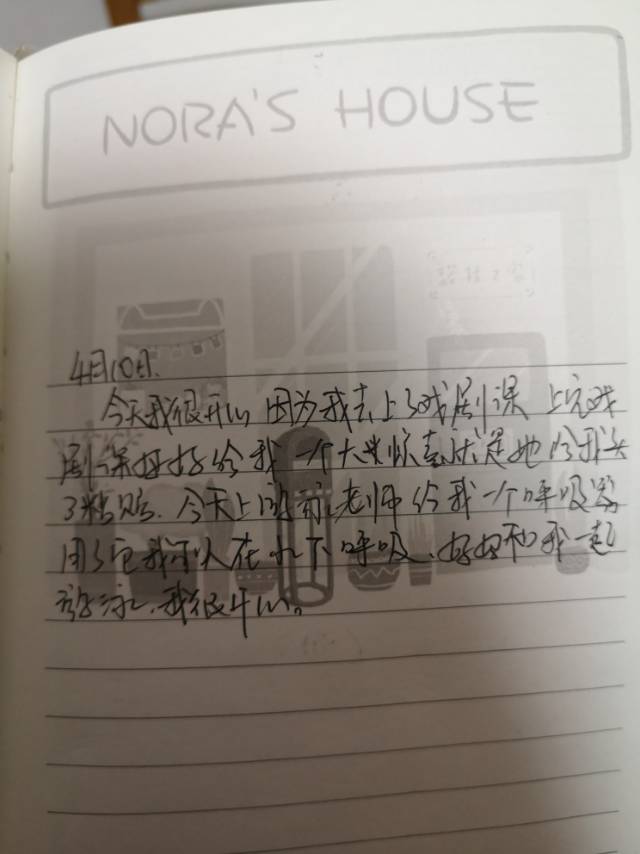 NORA'S HOUSE
4月10日.
今天我很开心 因为我去上了戏剧课 上完戏
剧课妈妈给我一个大惊喜就是她给我买
了粘贴. 今天上游泳,老师给我一个呼吸器
用了它我可以在水下呼吸、妈妈和我一起
游泳.我很开心。